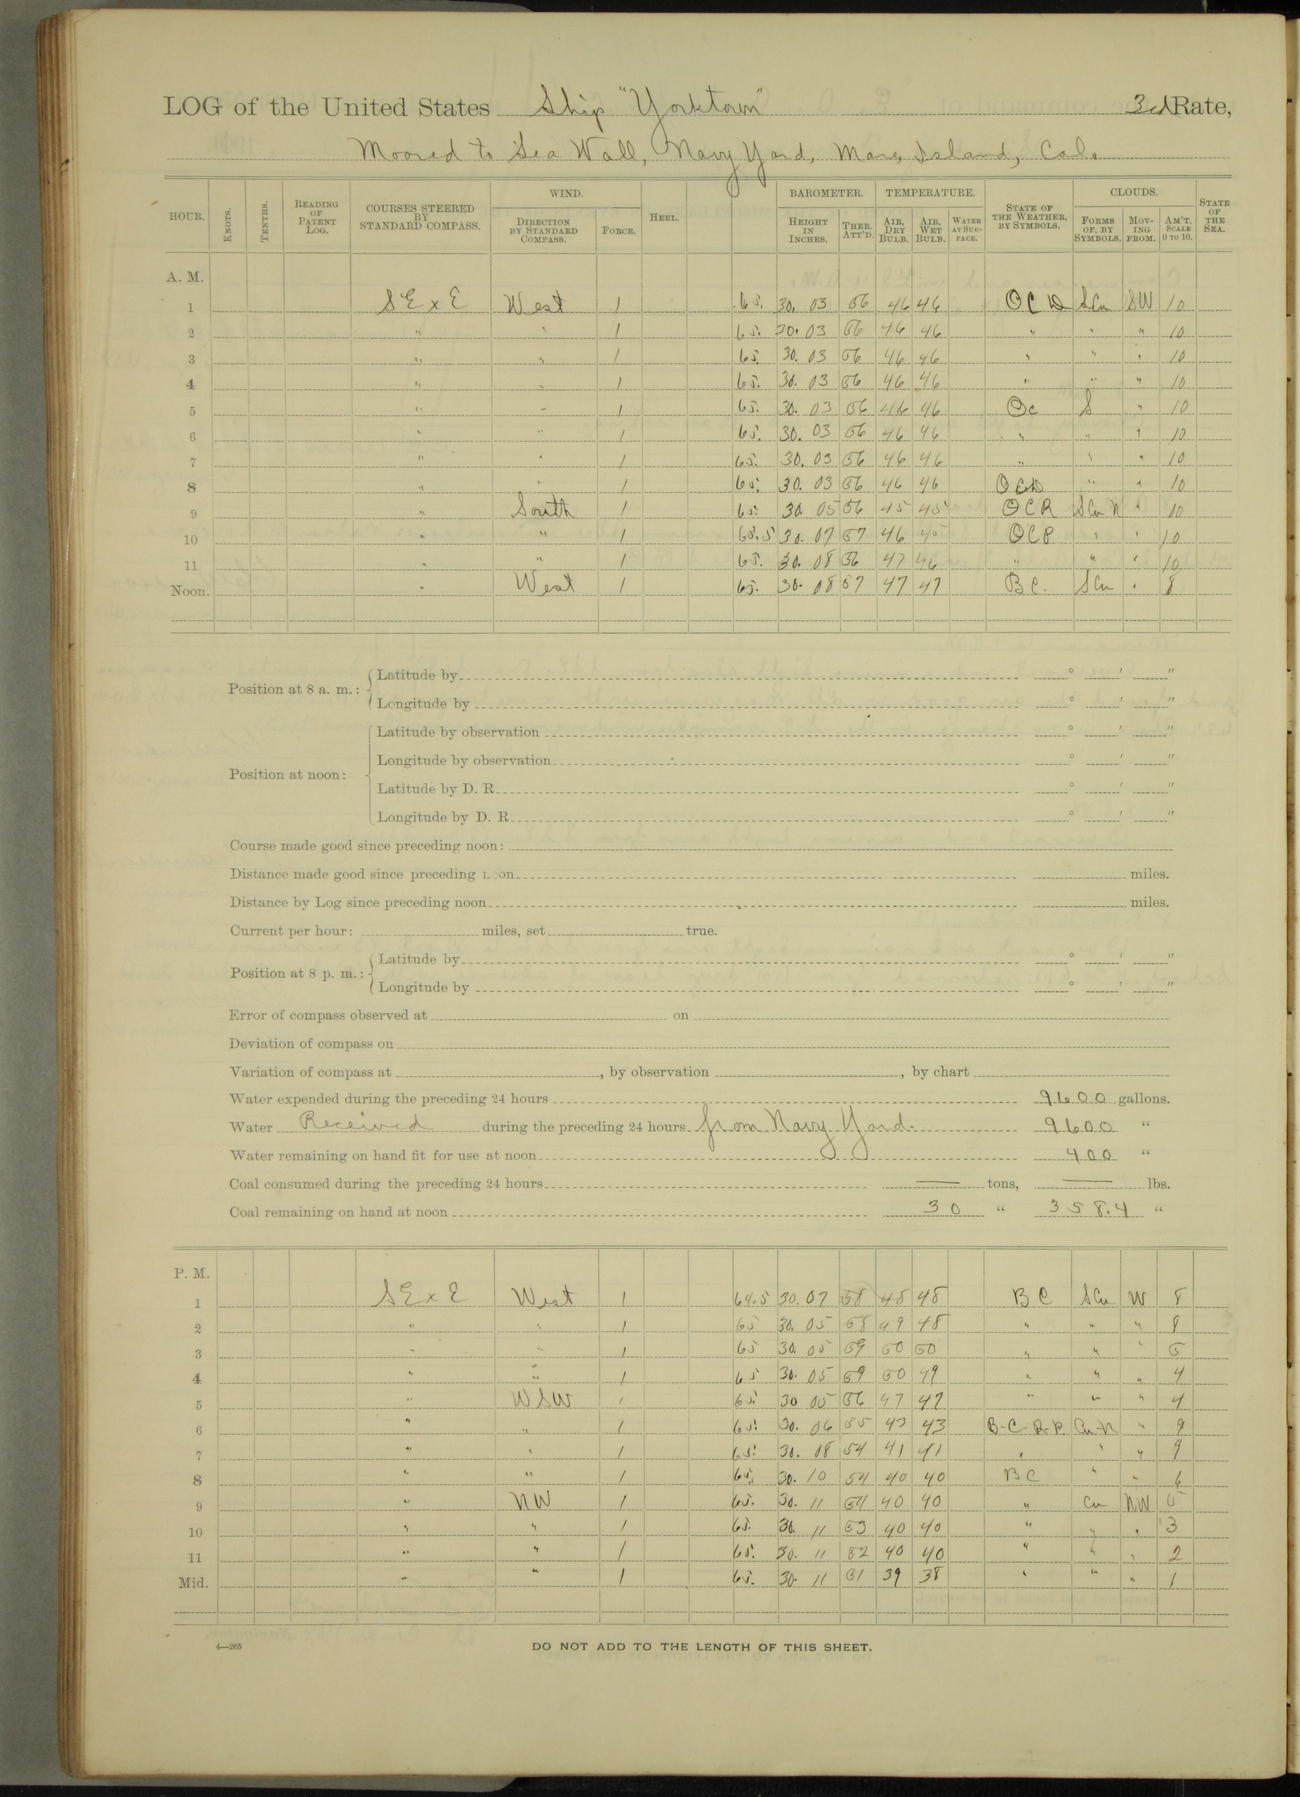 LOG of the United States Ship "Yorktown" 3rd Rate,
Moored to Sea Wall, Navy Yard, Mare Island, Cal.
HOUR. KNOTS. TENTHS. READING OF PATENT LOG. COURSES STEERED BY STANDARD COMPASS. WIND. DIRECTION BY STANDARD COMPASS. FORCE. HEEL. BAROMETER. HEIGHT IN INCHES. THER. ATT'D. TEMPERATURE. AIR, DRY BULB. AIR, WET BULB. WATER AT SURFACE. STATE OF THE WEATHER, BY SYMBOLS. CLOUDS. FORMS OF, BY SYMBOLS. MOVING FROM. AM'T. SCALE 0 TO 10. STATE OF THE SEA.
A. M.
1 SE x E West 1 65. 30. 03 56 46 46 OCD SCu SW 10
2 " " 1 65. 30. 03 56 46 46 " " " 10
3 " " 1 65. 30. 03 56 46 46 " " " 10
4 " " 1 65. 30. 03 56 46 46 " " " 10
5 " " 1 65. 30. 03 56 46 46 Oc S " 10
6 " " 1 65. 30. 03 56 46 46 " " " 10
7 " " 1 65. 30. 03 56 46 46 " " " 10
8 " " 1 65. 30. 03 56 46 46 OCD " " 10
9 " South 1 65. 30 05 56 45 45 OCR SCu N " 10
10 " " 1 65.5 30. 07 57 46 45 OCP " " 10
11 " " 1 65. 30. 08 56 47 46 " " " 10
Noon. " West 1 65. 30. 08 57 47 47 BC. SCu " 8
Position at 8 a. m.: Latitude by ° ' "
Longitude by ° ' "
Position at noon: Latitude by observation ° ' "
Longitude by observation ° ' "
Latitude by D. R. ° ' "
Longitude by D. R. ° ' "
Course made good since preceding noon:
Distance made good since preceding noon miles.
Distance by Log since preceding noon miles.
Current per hour: miles, set true.
Position at 8 p. m.: Latitude by ° ' "
Longitude by ° ' "
Error of compass observed at on
Deviation of compass on
Variation of compass at , by observation , by chart
Water expended during the preceding 24 hours 9600 gallons.
Water Received during the preceding 24 hours from Navy Yard. 9600 "
Water remaining on hand fit for use at noon 400 "
Coal consumed during the preceding 24 hours — tons, — lbs.
Coal remaining on hand at noon 30 " 358.4 "
P. M.
1 SE x E West 1 64.5 30. 07 58 48 48 BC SCu W 8
2 " " 1 65 30. 05 58 49 48 " " " 8
3 " " 1 65 30. 05 59 50 50 " " " 5
4 " " 1 65 30. 05 59 50 49 " " " 4
5 " WSW 1 65. 30 05 56 47 47 " " " 4
6 " " 1 65. 30. 06 55 43 43 B-C-R-P. Cu-N " 9
7 " " 1 65. 30. 08 54 41 41 " " " 9
8 " " 1 65. 30. 10 54 40 40 BC " " 6
9 " NW 1 65. 30. 11 54 40 40 " Cu NW 5
10 " " 1 65. 30. 11 53 40 40 " " " 3
11 " " 1 65. 30. 11 52 40 40 " " " 2
Mid. " " 1 65. 30. 11 51 39 38 " " " 1
4—265
DO NOT ADD TO THE LENGTH OF THIS SHEET.